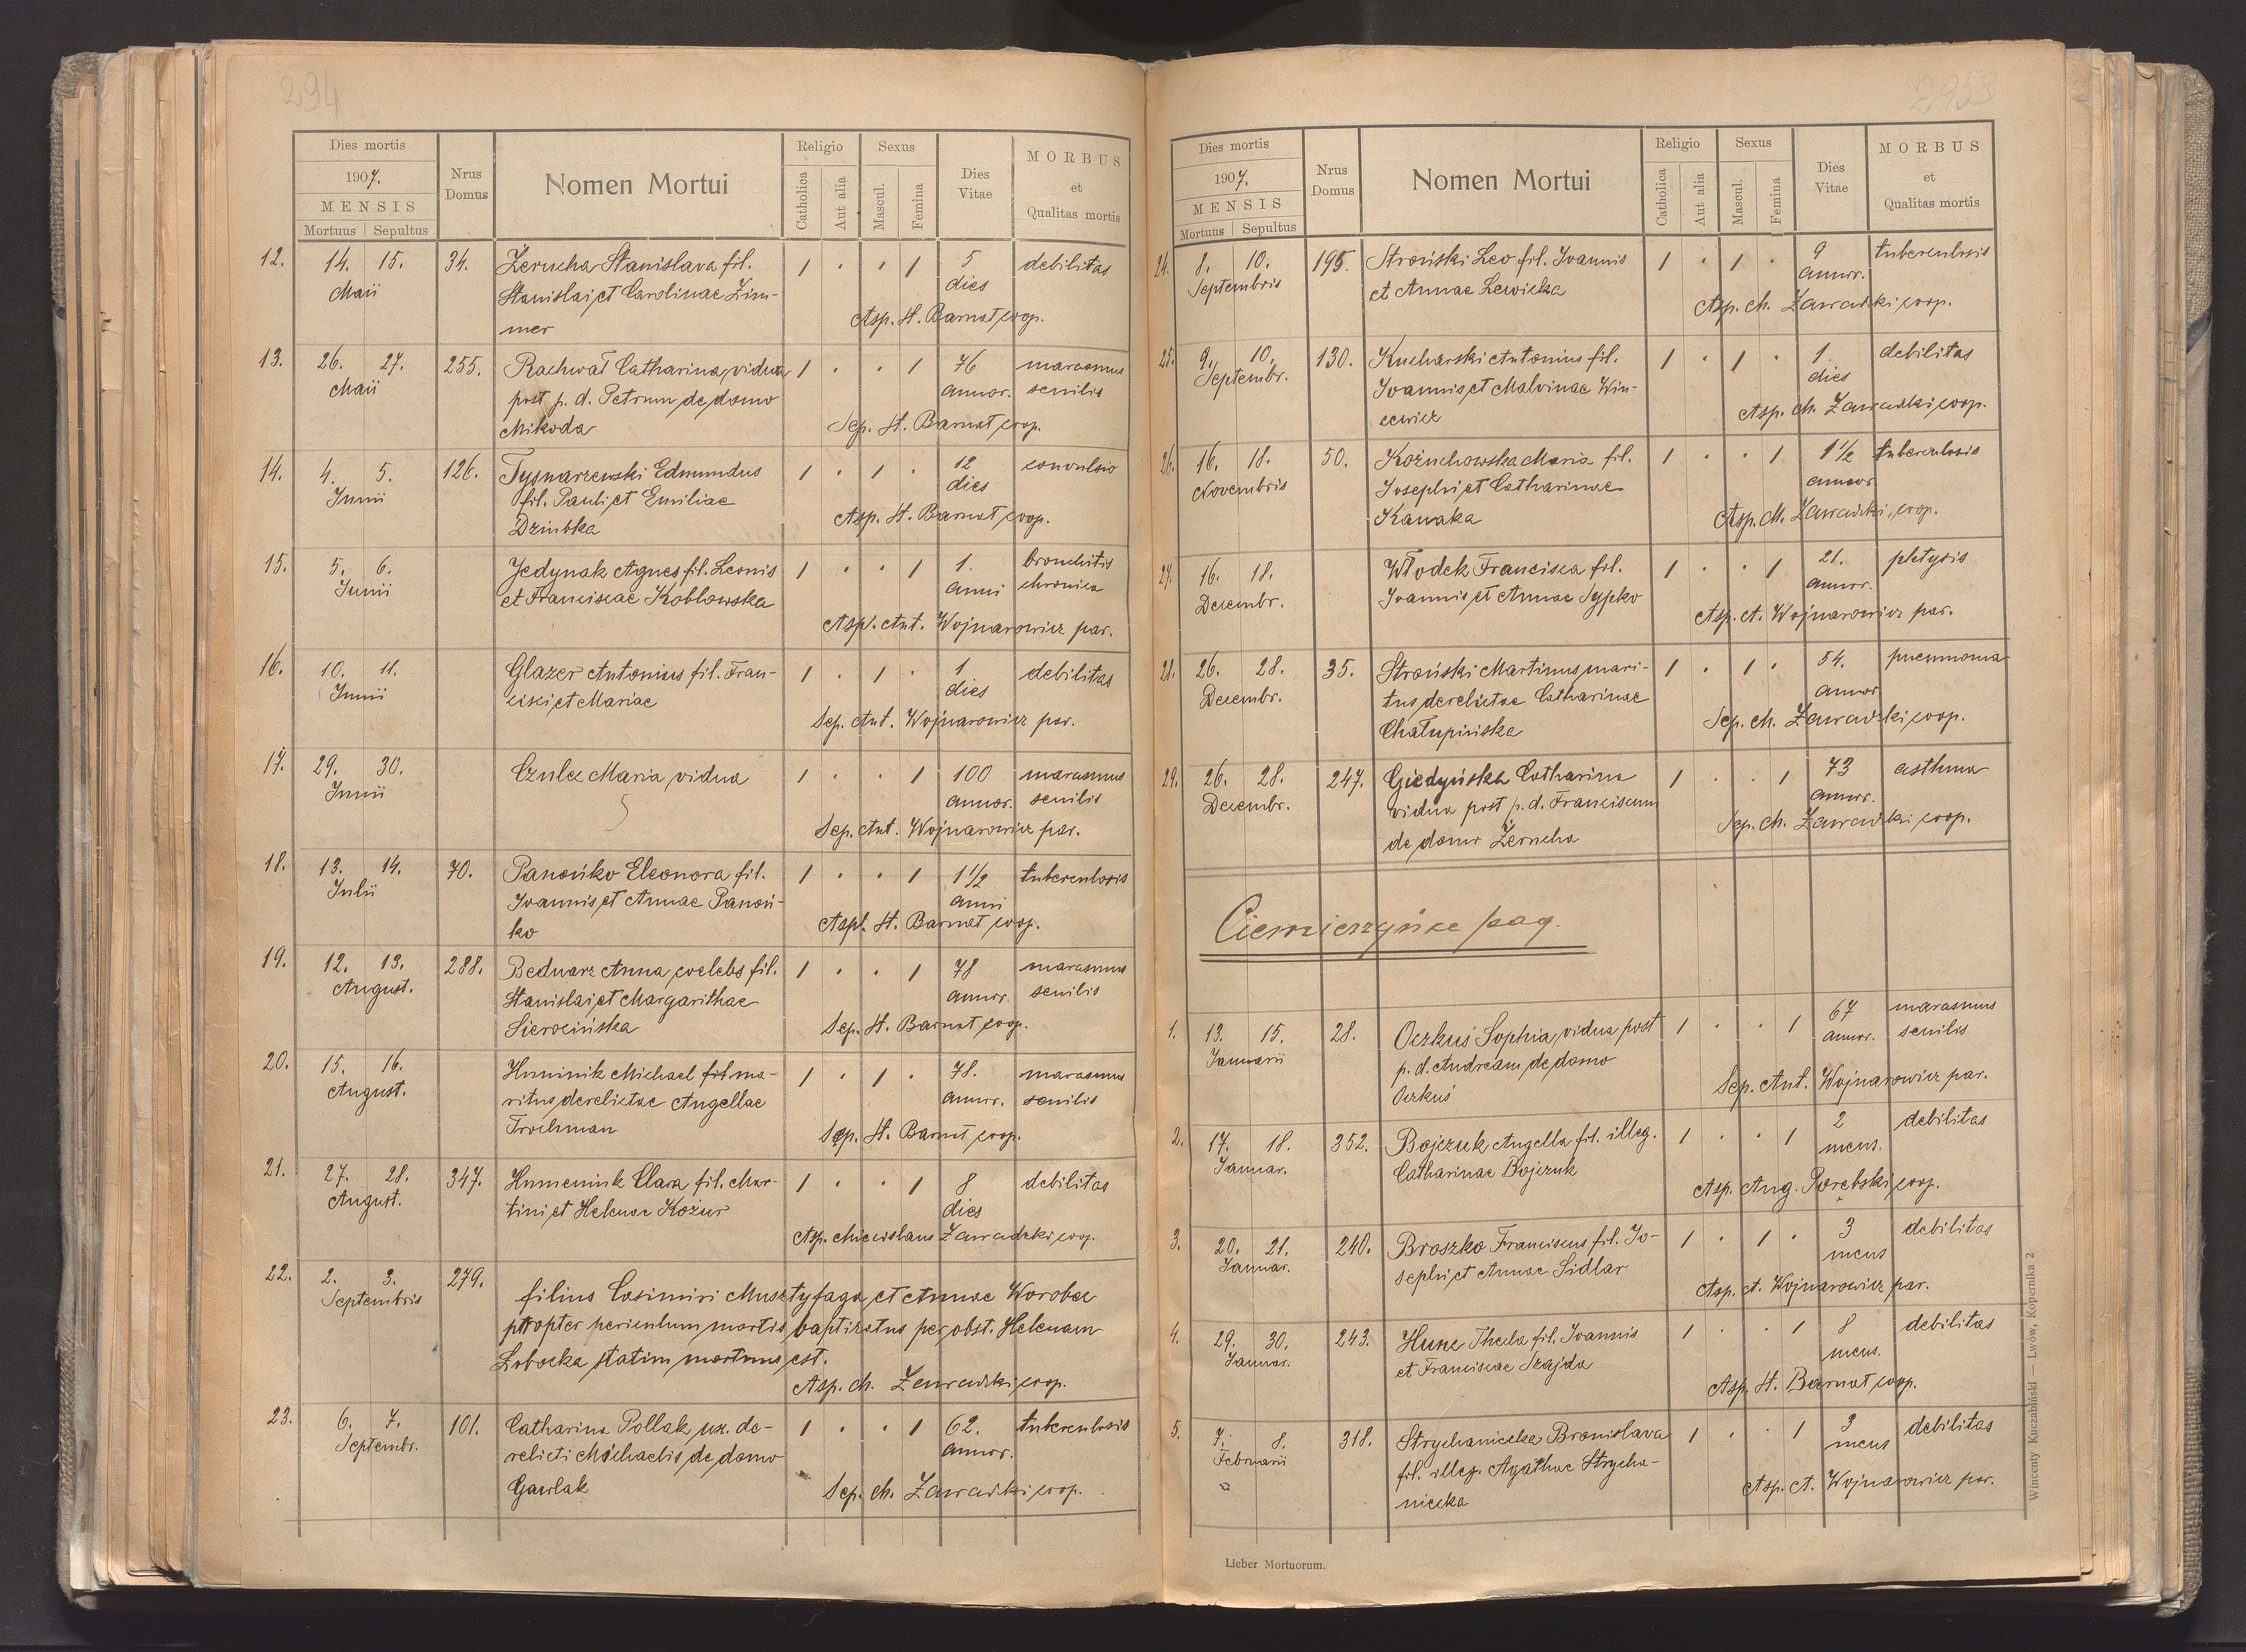 294
Dies mortis
1907.
MENSIS
Mortuus Sepultus
Nrus Domus
Nomen Mortui
Religio
Catholica
Aut alia
Sexus
Mascul.
Femina
Dies Vitae
MORBUS
et
Qualitas mortis
12. 14. 15. 34. Żerucha Stanislava fil. 1 . . 1 5 debilitas
Maii Stanislai et Carolinae Zim- dies
mer Asp. St. Barnat coop.
13. 26. 27. 255. Rachwał Catharina, vidua 1 . . 1 76 marasmus
Maii post p. d. Petrum de domo annor. senilis
Mikoda Sep. St. Barnat coop.
14. 4. 5. 126. Tysnarzewski Edmundus 1 . 1 . 12 convulsio
Junii fil. Pauli et Emiliae dies
Dziubka Asp. St. Barnat coop.
15. 5. 6. Jedynak Agnes fil. Leonis 1 . . 1 1. bronchitis
Junii et Franciscae Kobłowska anni chronica
Asp. Ant. Wojnarowicz par.
16. 10. 11. Glazer Antonius fil. Fran- 1 . 1 . 1 debilitas
Junii cisci et Mariae dies
Sep. Ant. Wojnarowicz par.
17. 29. 30. Czulec Maria vidua 1 . . 1 100 marasmus
Junii annor. senilis
Sep. Ant. Wojnarowicz par.
18. 13. 14. 70. Panońko Eleonora fil. 1 . . 1 1 1/2 tuberculosis
Julii Joannis et Annae Panoń- anni
ko Asp. St. Barnat coop.
19. 12. 13. 288. Bednarz Anna, coelebs fil. 1 . . 1 78 marasmus
August. Stanislai et Margarithae annor. senilis
Sierocińska Sep. St. Barnat coop.
20. 15. 16. Huminik Michael fil ma- 1 . 1 . 78. marasmus
August. ritus derelictae Angellae annor. senilis
Trochman Sep. St. Barnat coop.
21. 27. 28. 347. Humeniuk Clara fil. Mar- 1 . . 1 8 debilitas
August. tini et Helenae Kożur dies
Asp. Miecislaus Zawadzki coop.
22. 2. 3. 279. filius Casimiri Musztyfaga et Annae Worobec
Septembris propter periculum mortis baptizatus per obst. Helenam
Lobocka statim mortuus est.
Asp. M. Zawadzki coop.
23. 6. 7. 101. Catharina Pollak ux. de- 1 . . 1 62. tuberculosis
Septembr. relicti Michaelis, de domo annor.
Gawlak Sep. M. Zawadzki coop.
2953
Dies mortis
1907.
MENSIS
Mortuus Sepultus
Nrus Domus
Nomen Mortui
Religio
Catholica
Aut alia
Sexus
Mascul.
Femina
Dies Vitae
MORBUS
et
Qualitas mortis
24. 8. 10. 195. Stroński Leo fil. Joannis 1 . 1 . 9 tuberculosis
Septembris et Annae Lewicka annor.
Asp. M. Zawadzki coop.
25. 9. 10. 130. Kucharski Antonius fil. 1 . 1 . 1. debilitas
Septembr. Joannis et Malvinae Win- dies
cewicz Asp. M. Zawadzki coop.
26. 16. 18. 50. Kożuchowska Maria fil. 1 . . 1 1 1/2 tuberculosis
Novembris Josephi et Catharinae annor
Kanaka Asp. M. Zawadzki, coop.
27. 16. 18. Włodek Francisca fil. 1 . . 1 21. phtysis
Decembr. Joannis et Annae Sypko annor.
Asp. A. Wojnarowicz par.
28. 26. 28. 35. Stroński Martinus, mari- 1 . 1 . 54. pneumonia
Decembr. tus derelictae Catharinae annor
Chałupińska Sep. M. Zawadzki coop.
29. 26. 28. 247. Giedyńska Catharina 1 . . 1 73 asthma
Decembr. vidua post p. d. Franciscum annor.
de domo Żerucha Sep. M. Zawadzki coop.
Ciemierzyńce pag.
1. 13. 15. 28. Oczkuś Sophia, vidua post 1 . . 1 67 marasmus
Januarii p. d. Andream, de domo annor. senilis
Oczkuś Sep. Ant. Wojnarowicz par.
2. 17. 18. 352. Bojczuk Angella fil. illeg. 1 . . 1 2 debilitas
Januar. Catharinae Bojczuk mens.
Asp. Aug. Porębski coop.
3. 20. 21. 240. Broszko Franciscus fil. Jo- 1 . 1 . 3 debilitas
Januar. sephi et Annae Sidlar mens
Asp. A. Wojnarowicz par.
4. 29. 30. 243. Hunc Thecla fil. Joannis 1 . . 1 8 debilitas
Januar. et Franciscae Szajda mens.
Asp. St. Barnat coop.
5. 7. 8. 318. Strychaniecka Bronislava 1 . . 1 3 debilitas
Februarii fil. illeg. Agathae Strycha- mens
niecka Asp. A. Wojnarowicz par.
Lieber Mortuorum.
Wincenty Kuczabiński — Lwów, Kopernika 2